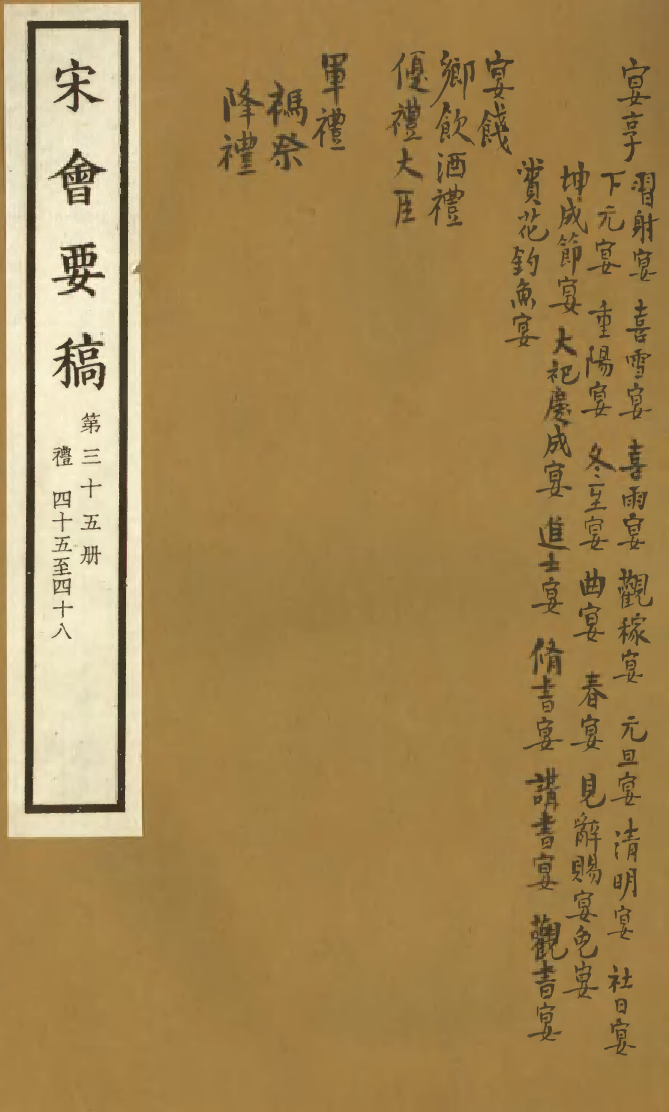 宴享
習射宴 喜雪宴 喜雨宴 觀稼宴 元旦宴 清明宴 社日宴
下元宴 重陽宴 冬至宴 曲宴 春宴 見辭賜宴免宴
坤成節宴 大祀慶成宴 進士宴 脩書宴 講書宴 觀書宴
賞花釣魚宴
宴餞
鄉飲酒禮
優禮大臣
軍禮
禡祭
降禮
宋會要稿
第三十五册
禮 四十五至四十八